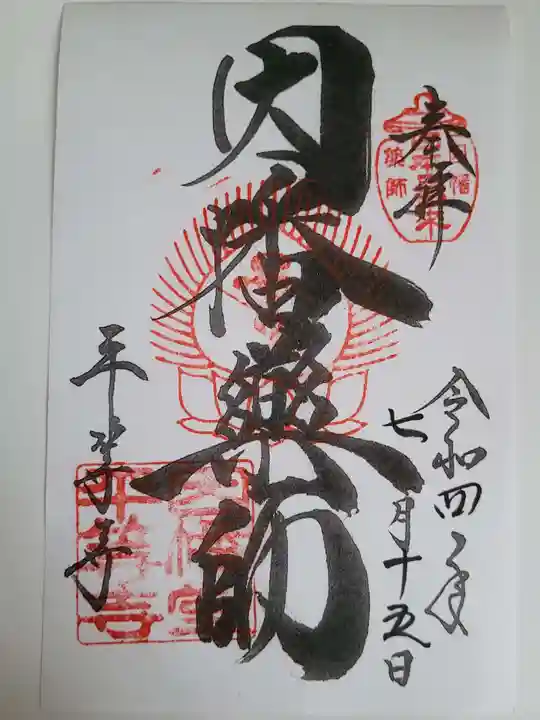 奉拝
因幡
薬師
令和四年
七月十五日
因幡薬師
平等寺
因幡堂
平等寺